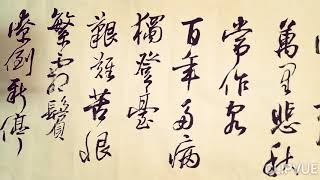 萬里悲秋
常作客
百年多病
獨登臺
艱難苦恨
繁霜鬢
潦倒新停
CLIPVUE